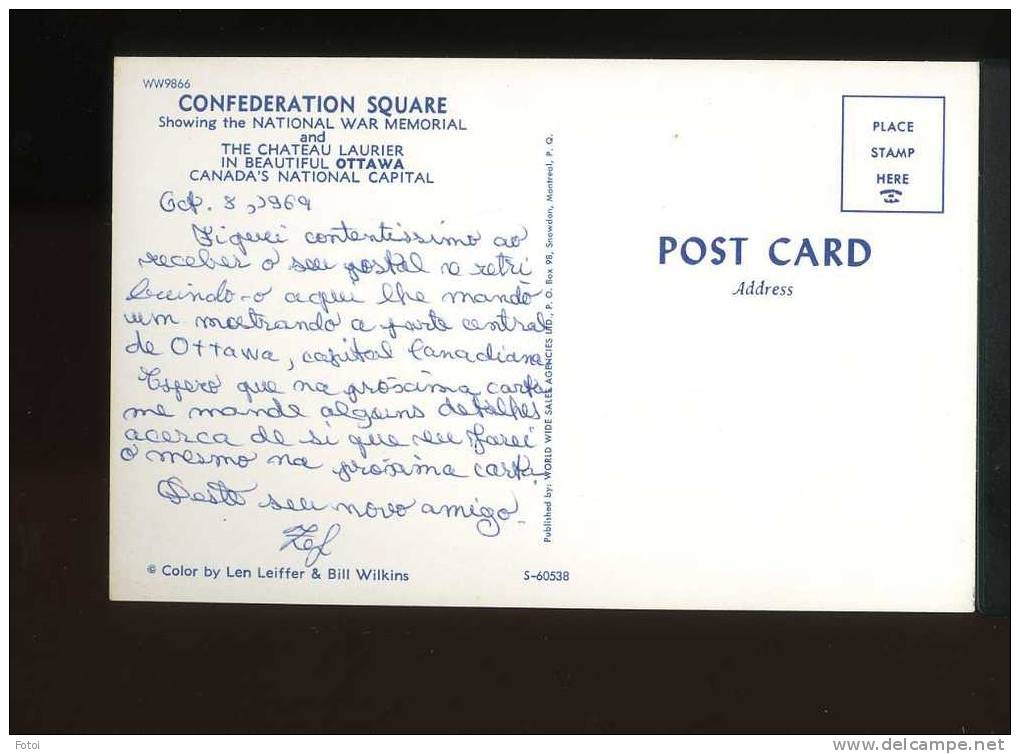 WW9866
CONFEDERATION SQUARE
Showing the NATIONAL WAR MEMORIAL
and
THE CHATEAU LAURIER
IN BEAUTIFUL OTTAWA
CANADA'S NATIONAL CAPITAL
Oct. 8, 1969
Fiquei contentissimo ao
receber o seu postal e retri
buindo-o aqui lhe mando
um mostrando a parte central
de Ottawa, capital Canadiana
Espero que na próxima carta
me mande alguns detalhes
acerca de si que eu farei
o mesmo na próxima carta.
Deste seu novo amigo.
© Color by Len Leiffer & Bill Wilkins
S-60538
Published by: WORLD WIDE SALES AGENCIES LTD., P. O. Box 98, Snowdon, Montreal, P. Q.
PLACE
STAMP
HERE
POST CARD
Address
Fotoi
www.delcampe.net